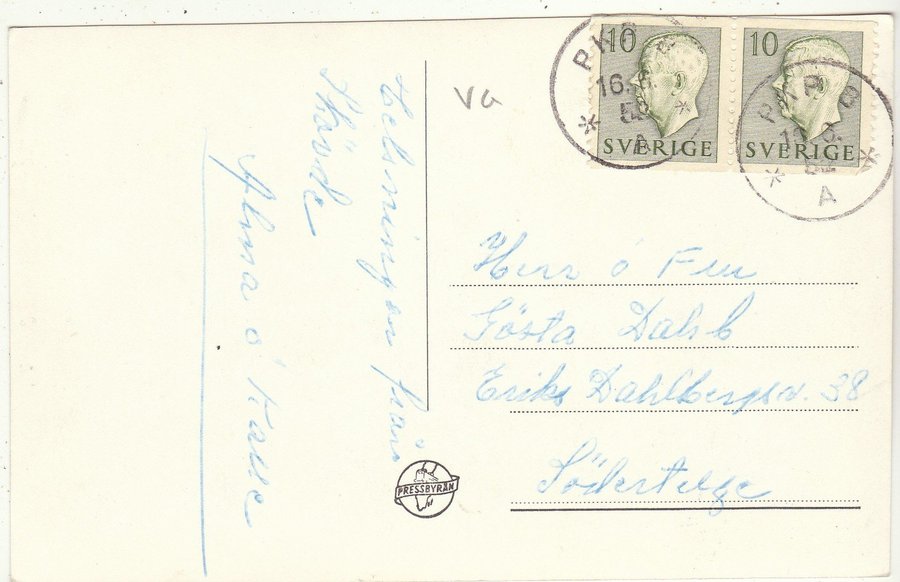 Helsningar från
Skövde
Alma o Kalle
Va
10
SVERIGE
10
SVERIGE
PKP 8
16.6.
52
A
PKP 8
52
A
Herr o Fru
Gösta Dahlb
Eriks Dahlbergsv. 38
Södertelge
PRESSBYRÅN